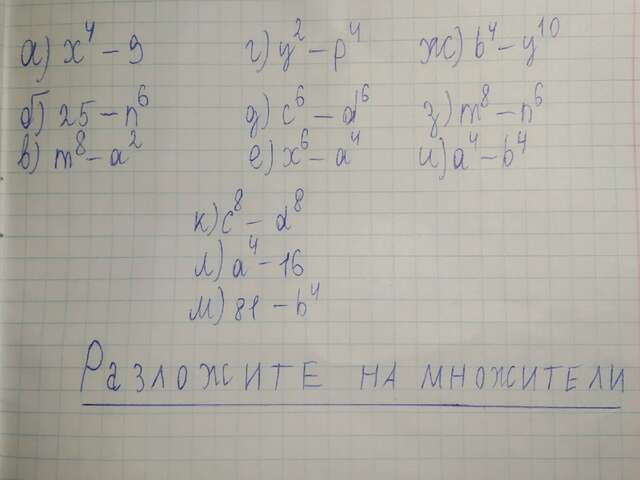 а) x⁴ – 9 г) y² – p⁴ ж) b⁴ – y¹⁰
б) 25 – n⁶ д) c⁶ – d⁶ з) m⁸ – n⁶
в) m⁸ – a² е) x⁶ – a⁴ и) a⁴ – b⁴
к) c⁸ – d⁸
л) a⁴ – 16
м) 81 – b⁴
Разложите на множители